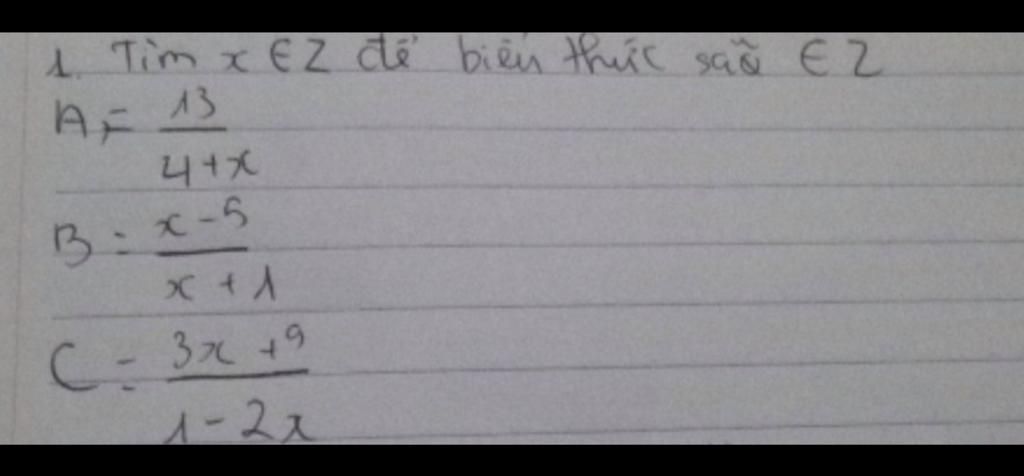 1. Tìm x ∈ Z để biểu thức sau ∈ Z
A = 13 / 4+x
B = x-5 / x+1
C = 3x+9 / 1-2x